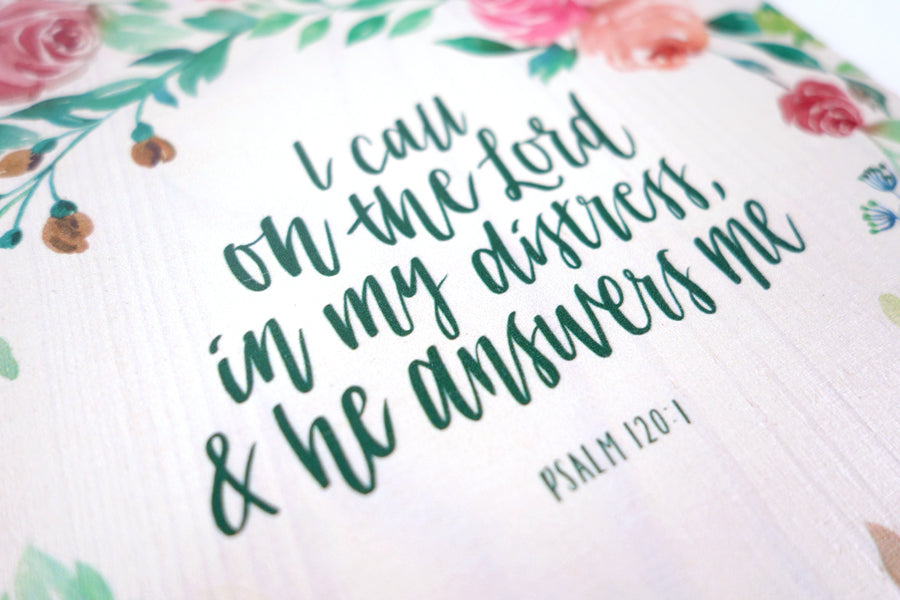 I call
on the Lord
in my distress,
& he answers me
PSALM 120:1